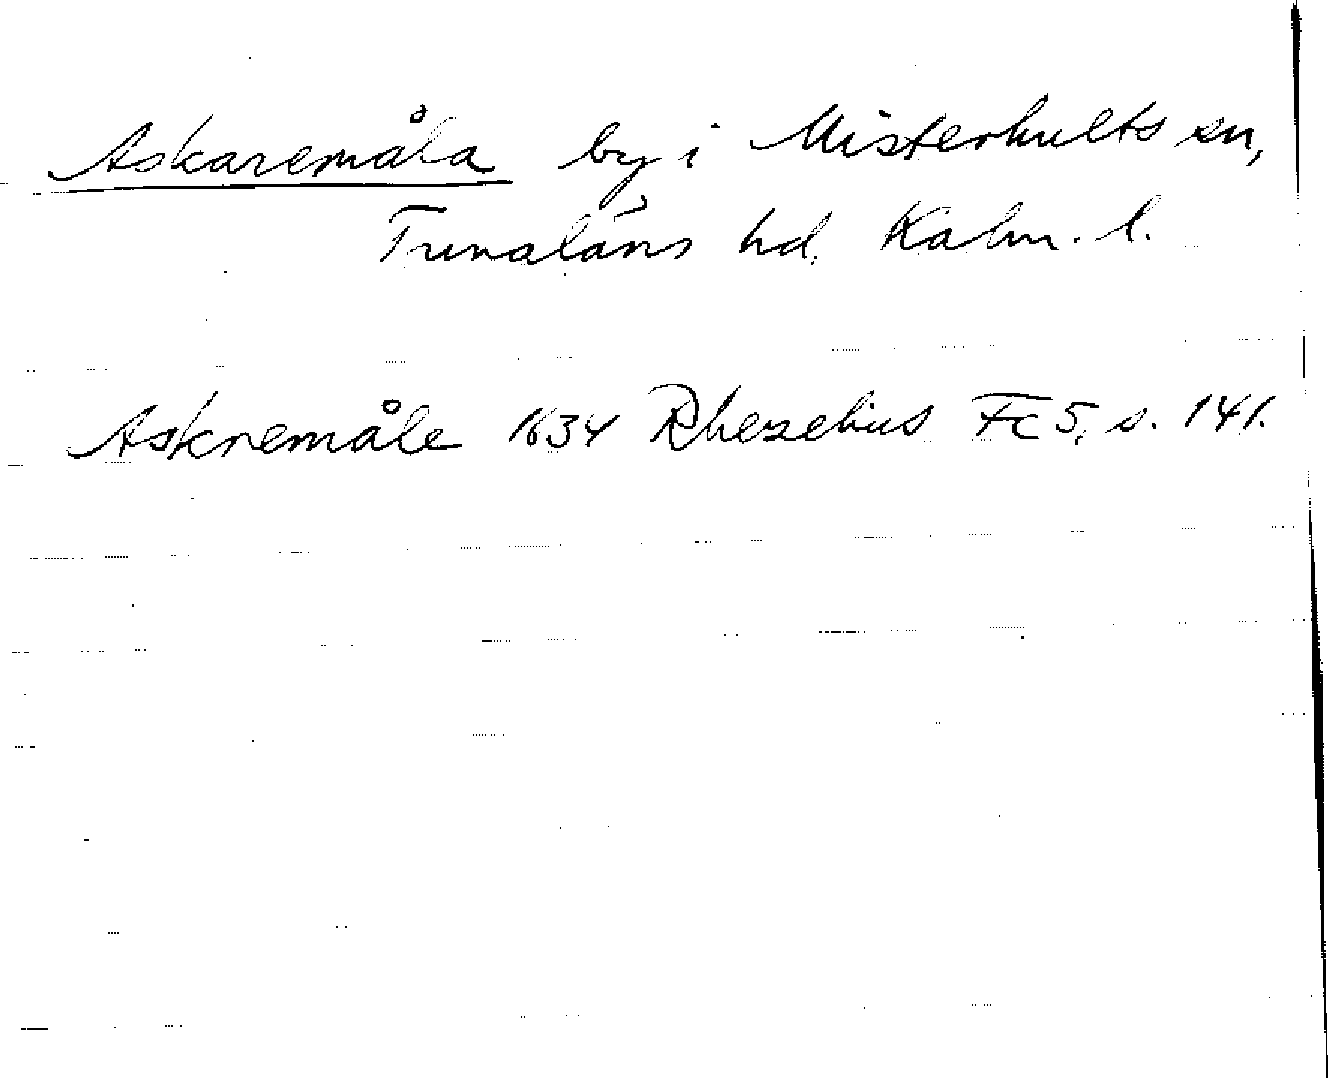 Askaremåla by i Misterhults sn,
Tunaläns hd. Kalm. l.
Askremåle 1634 Rhezelius Fc 5, s. 141.